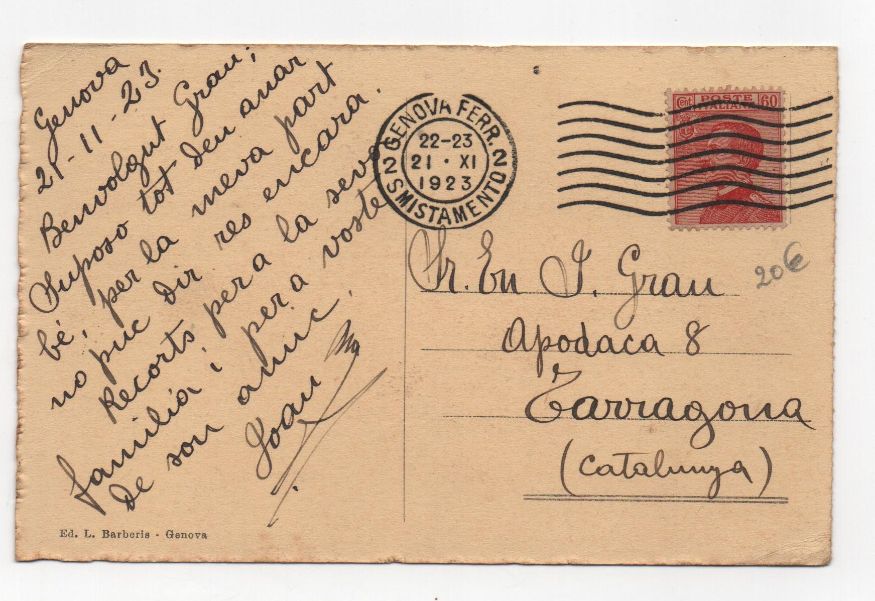 Genova
21-11-23.
Benvolgut Grau;
Suposo tot deu anar
bé, per la meva part
no puc dir res encara.
Recorts per a la seva
familia i per a vostè
de son amic,
Joan
Ed. L. Barberis - Genova
GENOVA FERR. 2
22-23
21 · XI
1923
2 SMISTAMENTO
Cent POSTE ITALIANE 60
Sr. En J. Grau
20€
Apodaca 8
Tarragona
(Catalunya)